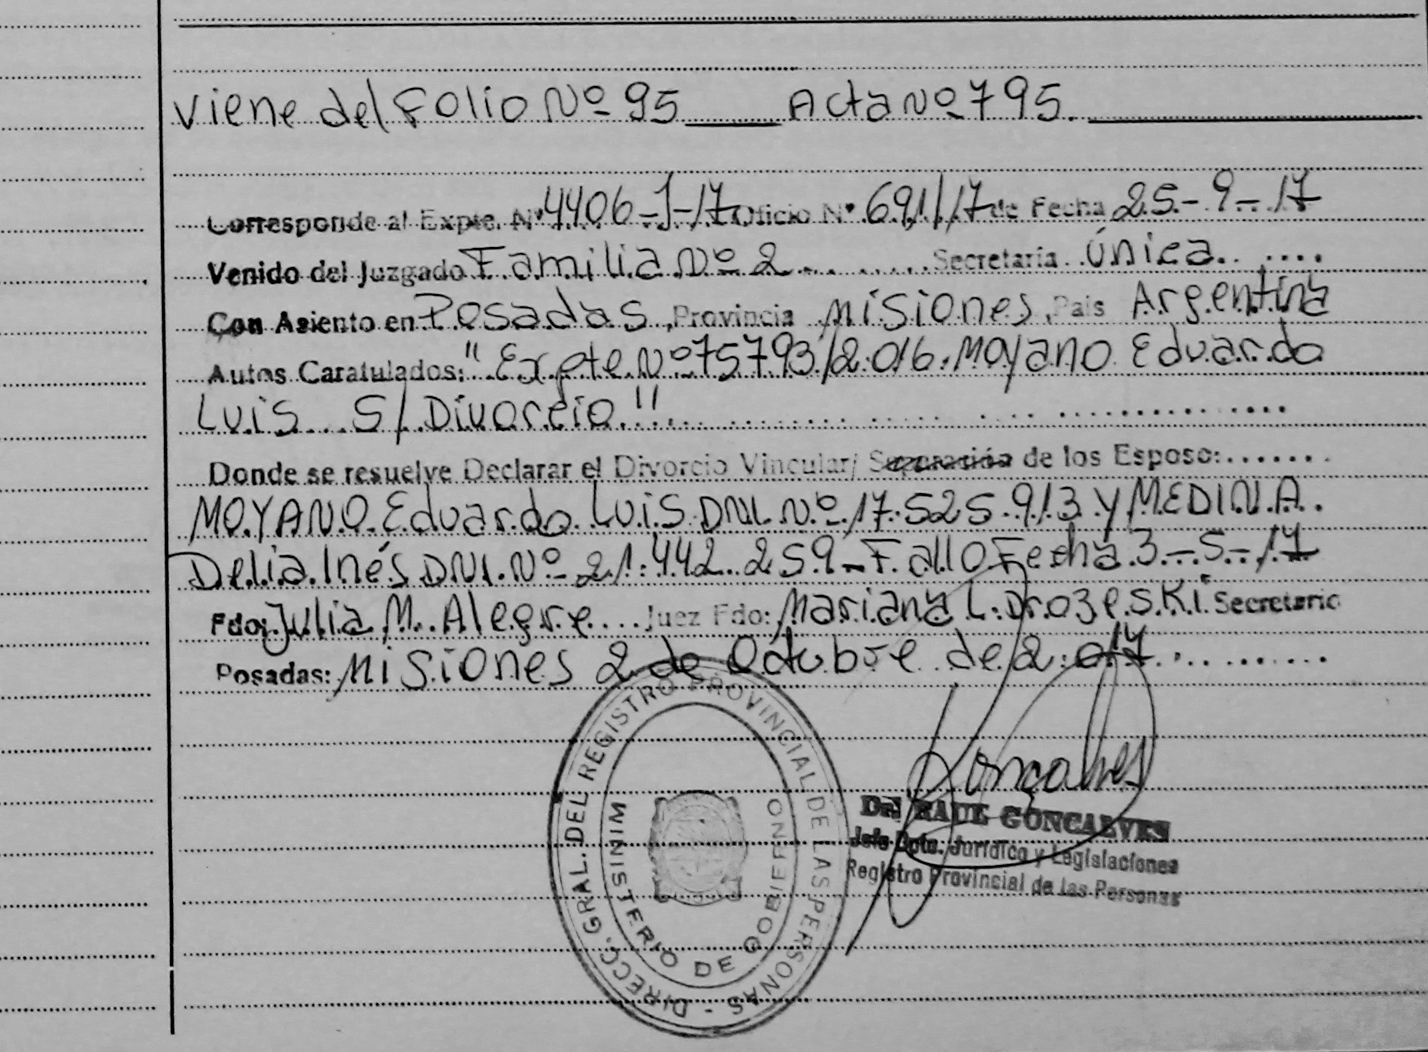 Viene del Folio Nº 95 ____ Acta Nº 795.
Corresponde al Expte. Nº 4406-J-17 Oficio Nº 691/17 de Fecha 25-9-17
Venido del Juzgado Familia Nº 2 Secretaria Única
Con Asiento en Posadas, Provincia Misiones, País Argentina
Autos Caratulados: "Expte Nº 75793/2.016. Moyano Eduardo
Luis S/Divorcio"
Donde se resuelve Declarar el Divorcio Vincular/ Separación de los Esposo:
MOYANO Eduardo Luis DNI. Nº 17.525.913 y MEDINA
Delia Inés DNI. Nº 21.442.259 - Fallo Fecha 3-5-17
Fdo: Julia M. Alegre Juez Fdo: Mariana L. Drozeski Secretario
Posadas: Misiones 2 de Octubre de 2.017
DIRECC. GRAL. DEL REGISTRO PROVINCIAL DE LAS PERSONAS -
MINISTERIO DE GOBIERNO
Goncalves
RAUL GONCALVES
Jefe Dpto. Jurídico y Legislaciones
Registro Provincial de las Personas